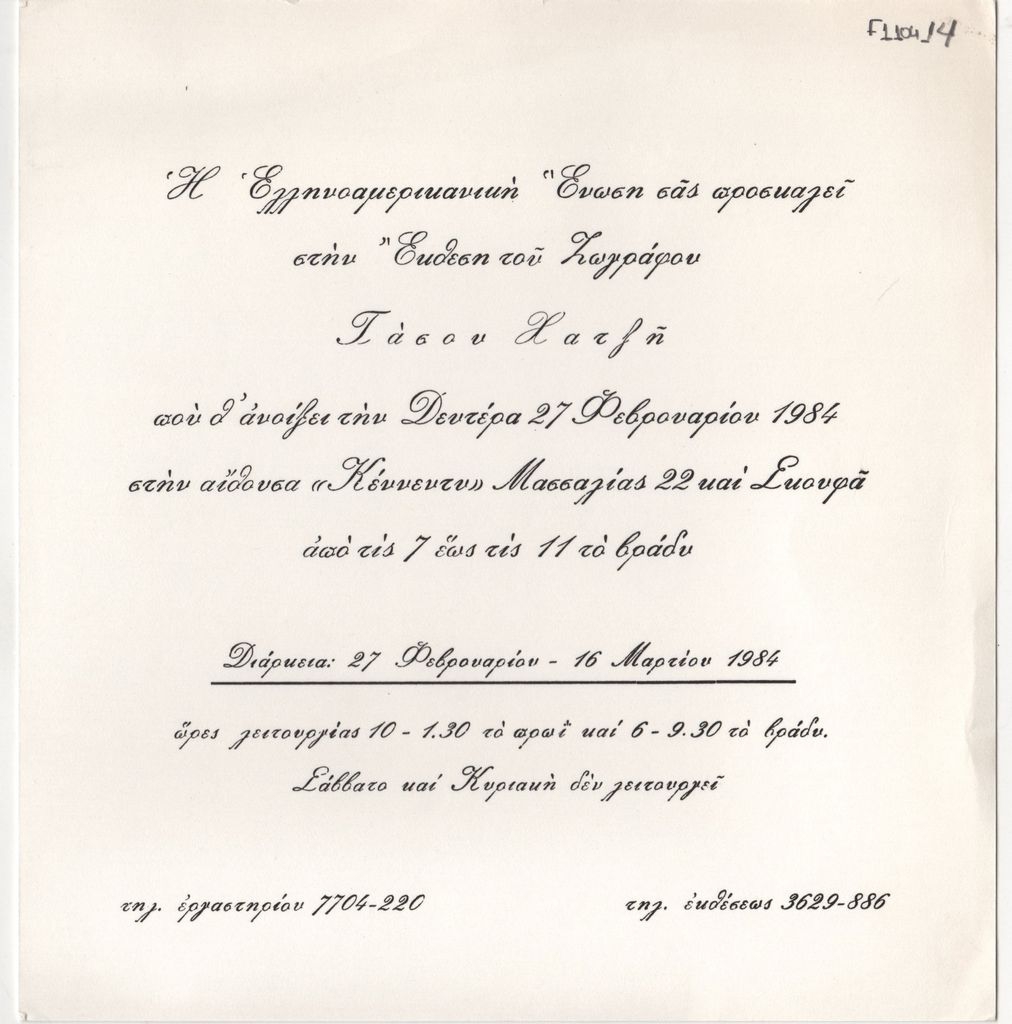 F1104_14
Ἡ Ἑλληνοαμερικανική Ἕνωση σᾶς προσκαλεῖ
στήν Ἔκθεση τοῦ Ζωγράφου
Τάσου Χατζῆ
πού θ' ἀνοίξει τήν Δευτέρα 27 Φεβρουαρίου 1984
στήν αἴθουσα «Κέννεντυ» Μασσαλίας 22 καί Σκουφᾶ
ἀπό τίς 7 ἕως τίς 11 τό βράδυ
Διάρκεια: 27 Φεβρουαρίου - 16 Μαρτίου 1984
ὥρες λειτουργίας 10 - 1.30 τό πρωΐ καί 6 - 9.30 τό βράδυ.
Σάββατο καί Κυριακή δέν λειτουργεῖ
τηλ. ἐργαστηρίου 7704-220 τηλ. ἐκθέσεως 3629-886